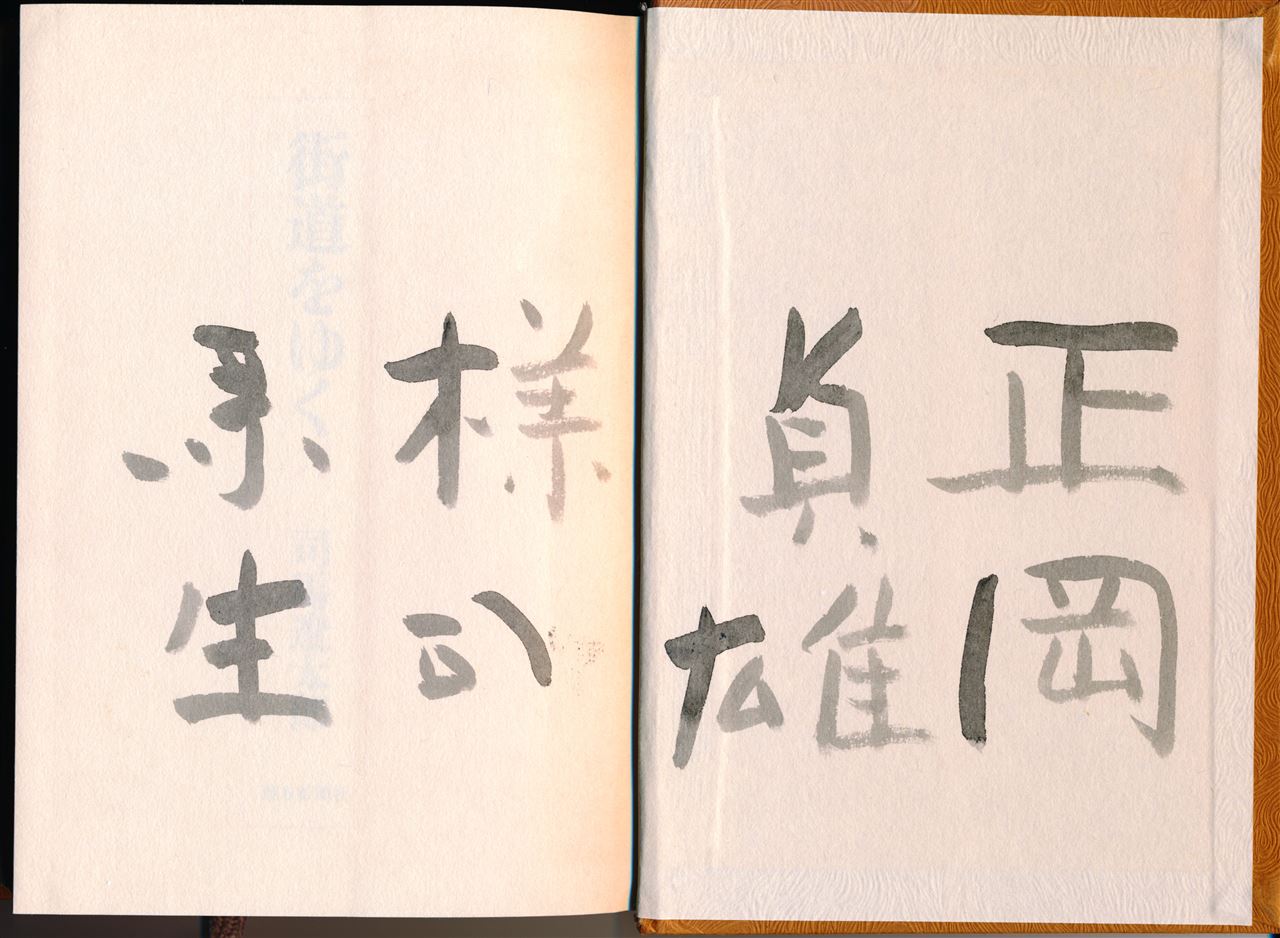 正岡
貞雄
様
司
馬
生
街道をゆく